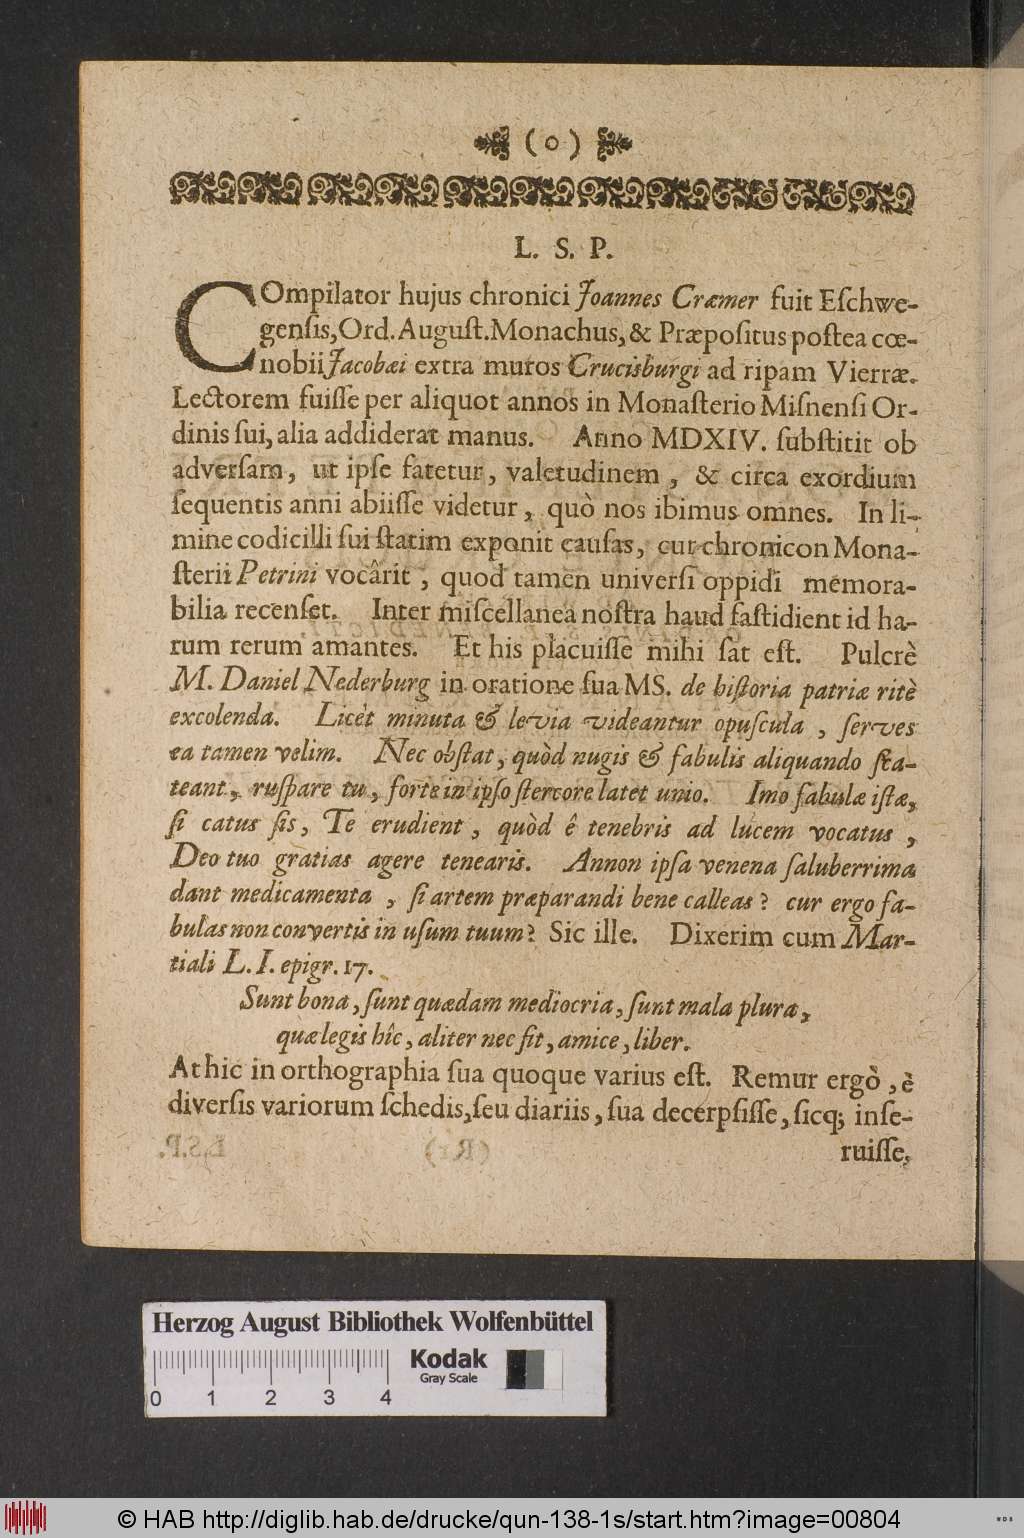 ( o )
L. S. P.
COmpilator hujus chronici Joannes Cræmer fuit Eſchwe-
genſis, Ord. Auguſt. Monachus, & Præpoſitus poſtea cœ-
nobii Jacobæi extra muros Crucisburgi ad ripam Vierræ.
Lectorem fuiſſe per aliquot annos in Monaſterio Miſnenſi Or-
dinis ſui, alia addiderat manus. Anno MDXIV. ſubſtitit ob
adverſam, ut ipſe fatetur, valetudinem, & circa exordium
ſequentis anni abiiſſe videtur, quò nos ibimus omnes. In li-
mine codicilli ſui ſtatim exponit cauſas, cur chronicon Mona-
ſterii Petrini vocârit, quod tamen univerſi oppidi memora-
bilia recenſet. Inter miſcellanea noſtra haud faſtidient id ha-
rum rerum amantes. Et his placuiſſe mihi ſat eſt. Pulcrè
M. Daniel Nederburg in oratione ſua MS. de hiſtoria patriæ ritè
excolenda. Licèt minuta & levia videantur opuſcula, ſerves
ea tamen velim. Nec obſtat, quòd nugis & fabulis aliquando ſca-
teant, ruſpare tu, forte in ipſo ſtercore latet unio. Imo fabulæ iſtæ,
ſi catus ſis, Te erudient, quòd ê tenebris ad lucem vocatus,
Deo tuo gratias agere tenearis. Annon ipſa venena ſaluberrima
dant medicamenta, ſi artem præparandi bene calleas? cur ergo fa-
bulas non convertis in uſum tuum? Sic ille. Dixerim cum Mar-
tiali L. I. epigr. 17.
Sunt bona, ſunt quædam mediocria, ſunt mala plura,
quæ legis hîc, aliter nec fit, amice, liber.
At hic in orthographia ſua quoque varius eſt. Remur ergò, è
diverſis variorum ſchedis, ſeu diariis, ſua decerpſiſſe, ſicq; inſe-
ruiſſe,
Herzog August Bibliothek Wolfenbüttel
Kodak
Gray Scale
0 1 2 3 4
© HAB http://diglib.hab.de/drucke/qun-138-1s/start.htm?image=00804